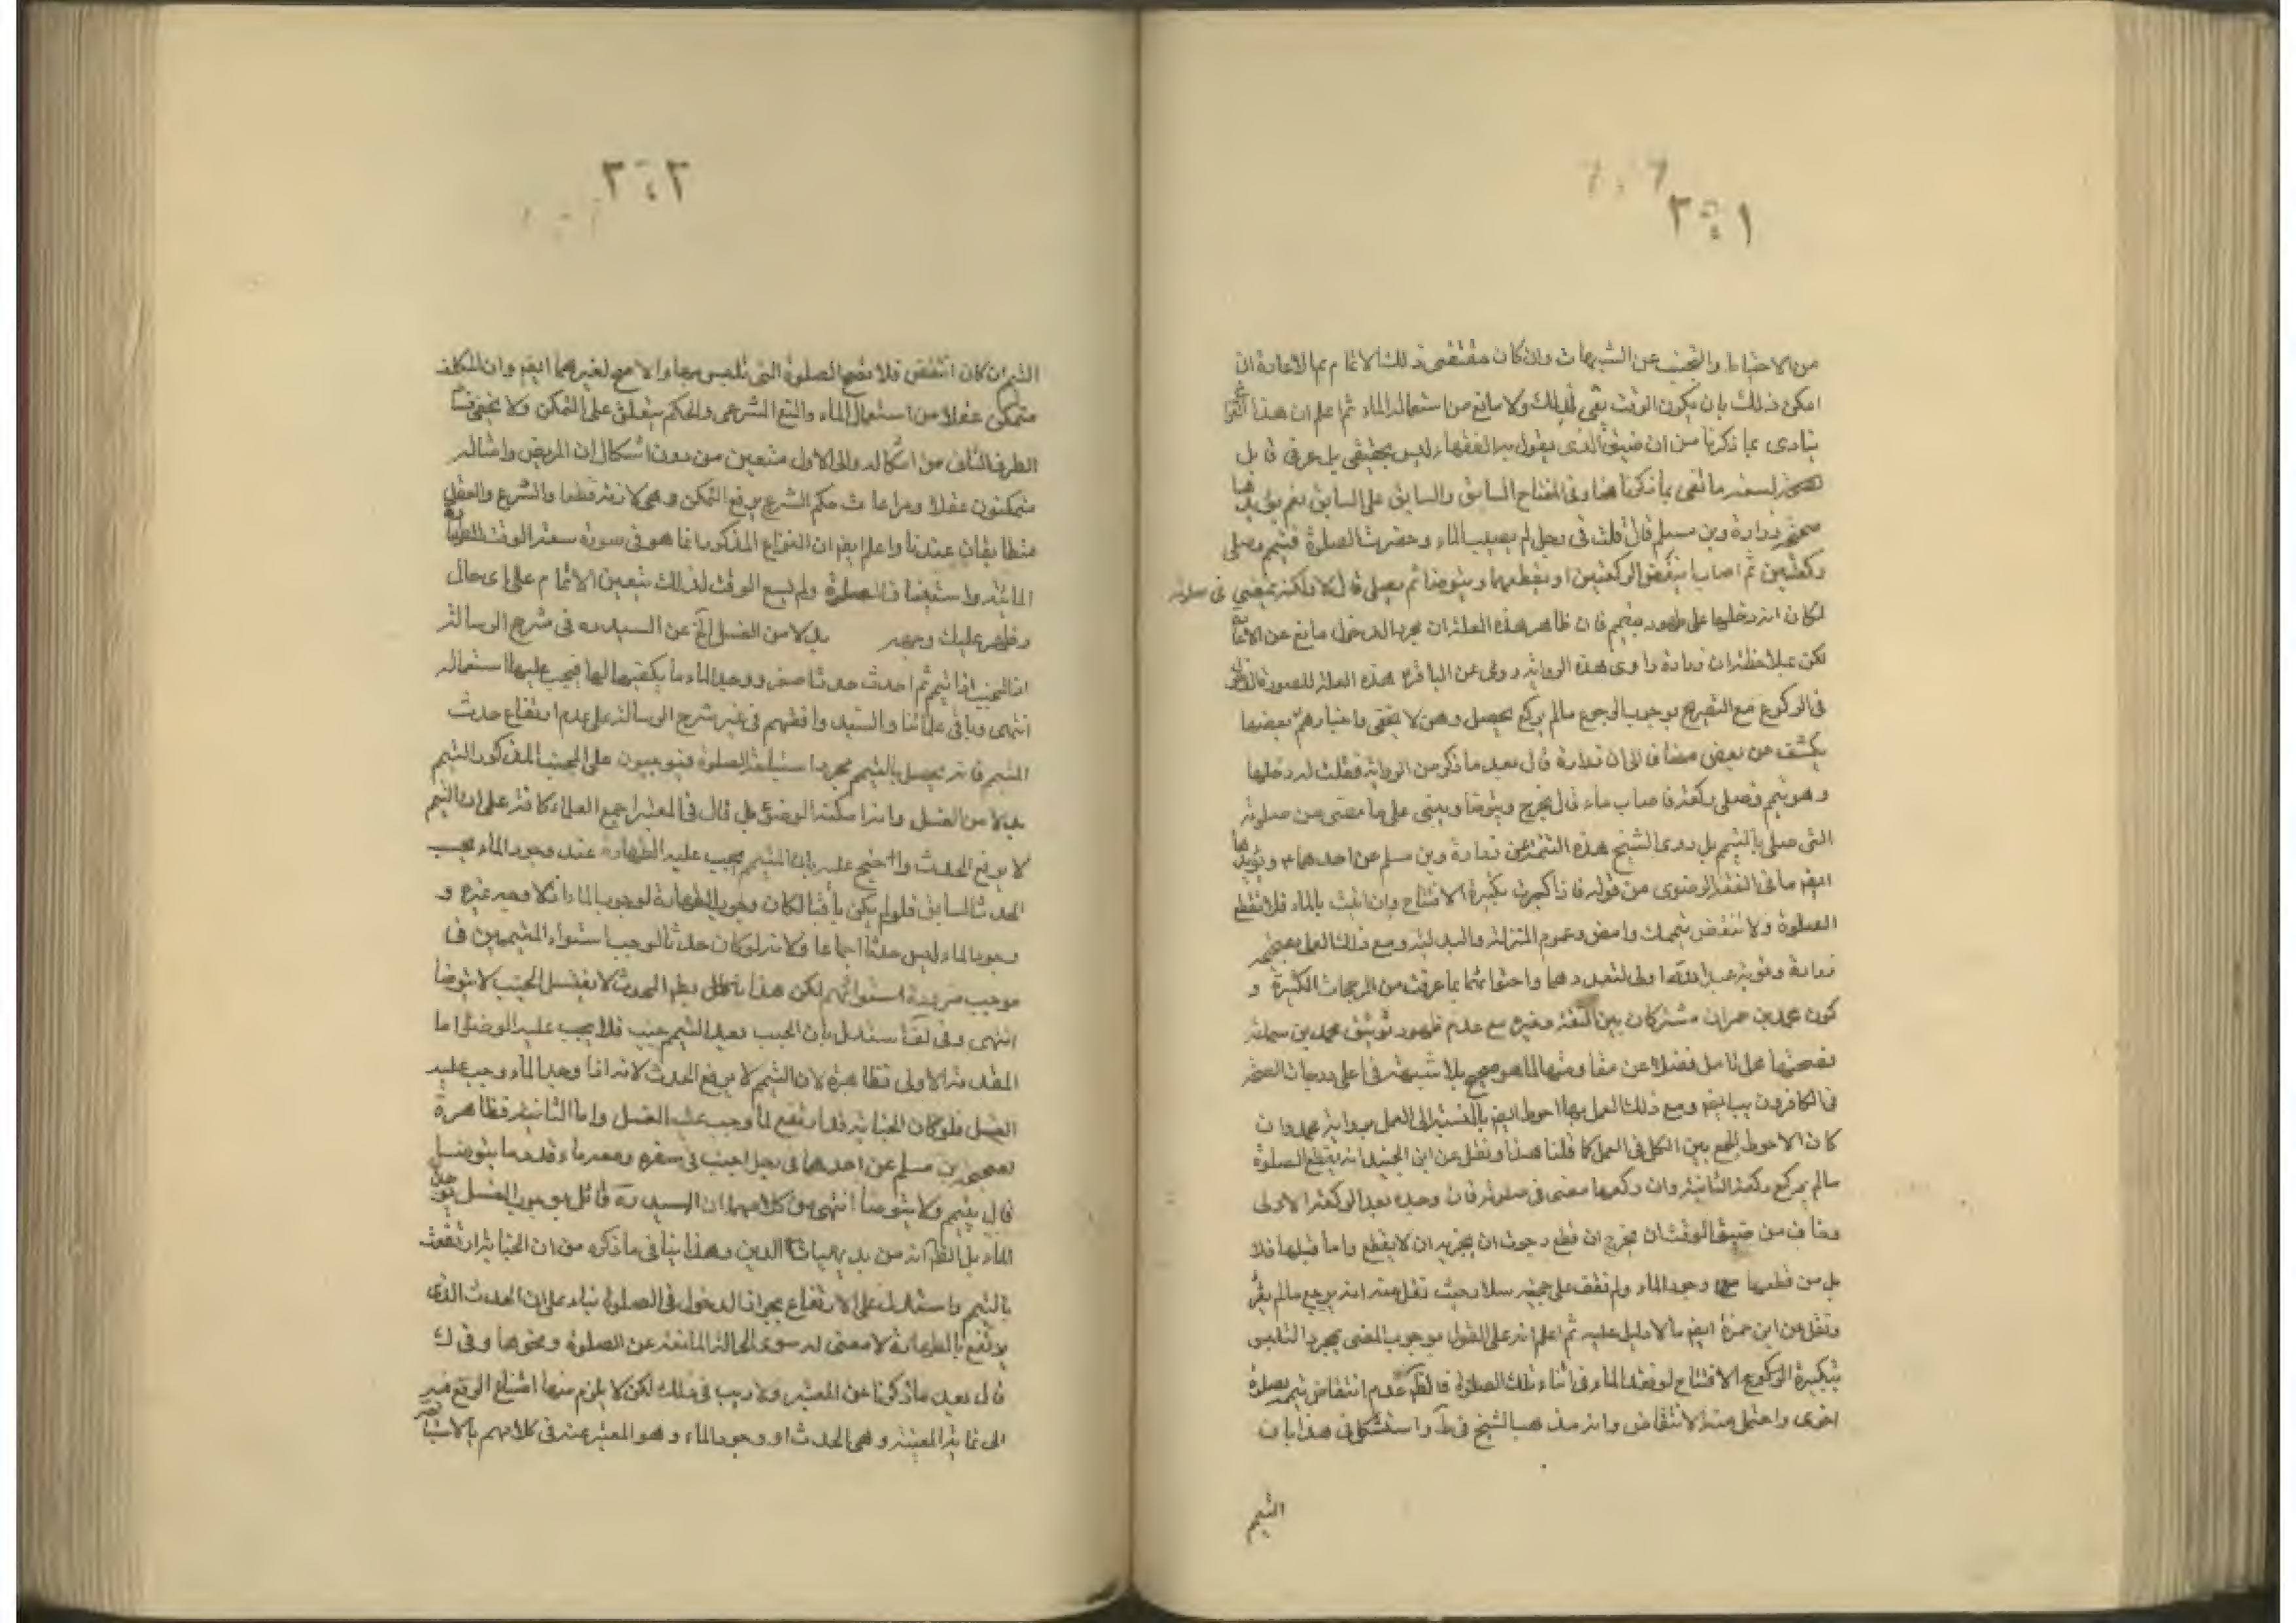 من الاحتياط والتجنب عن الشبهات وان كان مقتضى ذلك الاتمام بها الاعادة ان
امكن ذلك بان يكون الوقت بقى لذلك ولا مانع من استعماله الماء ثم اعلم ان هذا
ينادى بما ذكرنا من ان ضيق الذى يقول به الفقهاء ليس بحقيقى بل عرفى قابل
لسعة ما نفى بما ذكرنا هنا وفى المفتاح السابق والسابق على السابق نعم بقى
صحيحة زرارة وبن مسلم قال قلت فى رجل لم يصب الماء وحضرت الصلوة فتيمم وصلى
ركعتين ثم اصاب الماء اينقض الركعتين او يقطعهما ويتوضا ثم يصلى قال لا ولكنه يمضى فى صلوته
لمكان انه دخلها على طهور بتيمم فان ظاهر هذه العلة ان مجرد الدخول مانع عن
لكن بملاحظة ان زرارة راوى هذه الرواية روى عن الباقر ع هذه العلة للصورة
فى الركوع مع التصريح بوجوب الرجوع ما لم يركع يحصل وهن لا يخفى واخبارهم بعضها
يكشف عن بعض مضافا الى ان زرارة قال بعد ما ذكر من الرواية فقلت له دخلها
وهو متيمم فصلى ركعة فاصاب ماء قال يخرج ويتوضا ويبنى على ما مضى من صلوته
التى صلى بالتيمم بل روى الشيخ هذه التتمة عن زرارة وبن مسلم عن احدهما ع ويؤيدها
ايضم ما فى الفقه الرضوى من قوله فاذا كبرت تكبيرة الافتتاح وان اتيت بالماء فلا تقطع
الصلوة ولا تنقض تيممك وامض وعموم المنزلة والبدلية ومع ذلك العمل بصحيحة
زرارة وقوية عبد الله اولى لتعددهما واعتضادهما بما عرفت من المرجحات الكثيرة و
كون محمد بن حمران مشتركان بين الثقة وغيره مع عدم ظهور توثيق محمد بن سماعة
فصحتها محل تامل فضلا عن مقاومتها لما هو صحيح بلا شبهة فى اعلى درجات الصحة
فى الكافرون بها ايضم ومع ذلك العمل بها احوط ايضم بالنسبة الى العمل برواية محمد وان
كان الاحوط الجمع بين الكل فى العمل كما قلنا هذا ونقل عن ابن الجنيد انه يقطع الصلوة
ما لم يركع ركعة الثانية وان ركعها مضى فى صلوته فان وجده بعد الركعة الاولى
وخاف من ضيق الوقت ان يخرج ان قطع رجوت ان يجزيه ان لا يقطع واما قبلها فلا
بل من قطعها مع وجود الماء ولم نقف على حجته سلار حيث نقل عنه انه يرجع ما لم يقرء
ونقل عن ابن حمزة ايضم ما لا دليل عليه ثم اعلم انه على القول بوجوب المضى بمجرد التلبس
بتكبيرة الركوع الافتتاح لو فقد الماء فى اثناء تلك الصلوة فالظم عدم انتقاض تيممه بصلوة
اخرى واحتمل منه الانتقاض وانه مذهب الشيخ فى ط واستشكل فى هذا بان
التيمم
التيمم ان كان انتقض فلا تصح الصلوة التى تلبس بها والا صح لغيرهما ايضم وان المكلف
متمكن عقلا من استعمال الماء والمنع الشرعى والحكم يتعلق على التمكن ولا يخفى
الطرف الثانى من اشكاله والى الاول متعين من دون اشكال ان المريض وامثاله
متمكنون عقلا ومراعات حكم الشرع يرفع التمكن وهى لازمة قطعا والشرع والعقل
متطابقان عندنا واعلم ايضم ان النزاع المذكور انما هو فى صورة سعة الوقت للطهارة
المائية واستيناف الصلوة ولم يسع الوقت لذلك يتعين الاتمام على اى حال
وظهر عليك وجهه بدلا من الغسل الخ عن السيد ره فى شرح الرسالة
ان الجنب اذا تيمم ثم احدث حدثا اصغر ووجد الماء ما يكفيه لها فيجب عليها استعماله
انتهى وباقى علمائنا والسيد وافقهم فى غير شرح الرسالة على عدم ارتفاع حدث
المتيمم فانه يحصل بالتيمم مجرد استباحة الصلوة فيوجبون على المجنب المذكور التيمم
بدلا من الغسل وان امكنه الوضوء بل قال فى المعتبر اجمع العلماء كافة على ان التيمم
لا يرفع الحدث واحتج عليه بان المتيمم يجب عليه الطهارة عند وجود الماء بحسب
الحدث السابق فلو لم يكن باقيا لكان وجوب الطهارة لوجود الماء اذ لا وجه غيره و
وجود الماء ليس حدثا اجماعا ولانه لو كان حدثا لوجب استواء المتيممين فى
موجبه ضرورة استوائهم لكن هذا باطل لان المحدث لا يغتسل الجنب لا يتوضا
انتهى وفى لف استدل بان الجنب بعد التيمم جنب فلا يجب عليه الوضوء اما
المقدمة الاولى فظاهرة لان التيمم لا يرفع الحدث لانه اذا وجد الماء وجب عليه
الغسل فلو كان الجنابة قد ارتفع لما وجب عليه الغسل واما الثانية فظاهرة
لصحيحة بن مسلم عن احدهما فى رجل اجنب فى سفره ومعه ماء وقدر ما يتوضا به
قال يتيمم ولا يتوضا انتهى وفى كلامهما ان السيد ره قائل بوجوب الغسل
الماء بل الظم انه من بديهيات الدين وهذا ينافى ما ذكره من ان الجنابة ارتفعت
بالتيمم واستدل على الارتفاع بجواز الدخول فى الصلوة بناء على ان الحدث الذى
يرتفع بالطهارة لا معنى له سوى الحالة المانعة عن الصلوة ونحوها وفى ك
قال بعد ما ذكرنا عن المعتبر ولا ريب فى ذلك لكن لا يلزم منها امتناع الرفع فيه
الى غاية المعينة وهى الحدث او وجود الماء وهو المعبر عنه فى كلامهم بالاستباحة